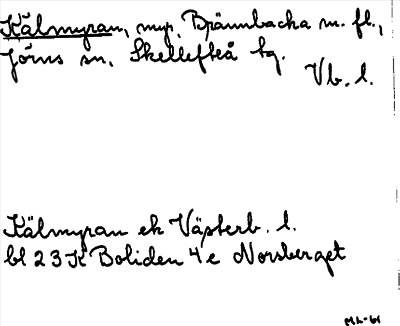 Kälmyran, myr, Brännbacka m. fl.,
Jörns sn, Skellefteå tg.
Vb. l.
Kälmyran ek Västerb. l.
bl 23 K Boliden 4e Norsberget
ML-61